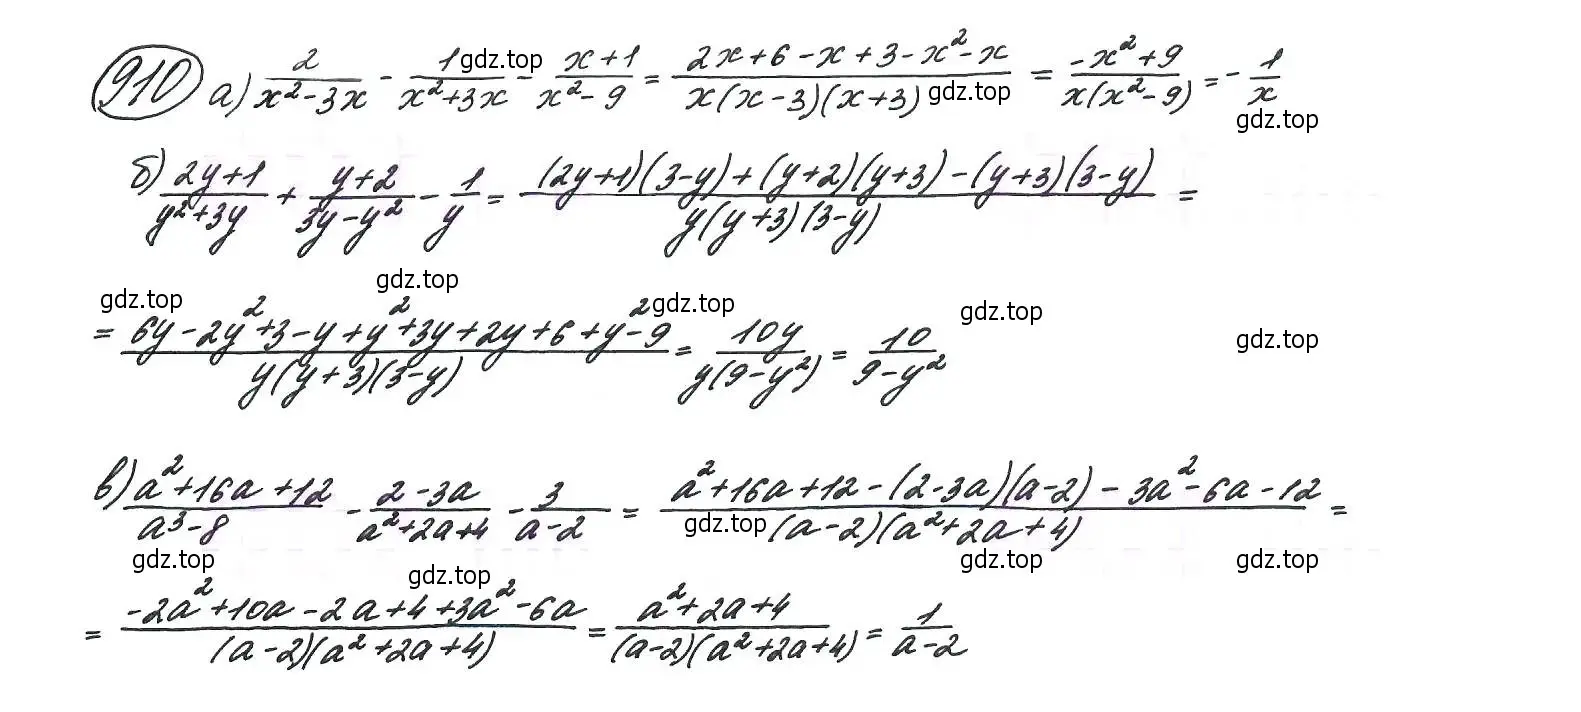 910 а) 2/(x²-3x) - 1/(x²+3x) - (x+1)/(x²-9) = (2x+6-x+3-x²-x)/(x(x-3)(x+3)) = (-x²+9)/(x(x²-9)) = -1/x
gdz.top gdz.top gdz.top
б) (2y+1)/(y²+3y) + (y+2)/(3y-y²) - 1/y = ((2y+1)(3-y)+(y+2)(y+3)-(y+3)(3-y))/(y(y+3)(3-y)) =
gdz.top gdz.top gdz.top gdz.top
= (6y-2y²+3-y+y²+3y+2y+6+y²-9)/(y(y+3)(3-y)) = 10y/(y(9-y²)) = 10/(9-y²)
gdz.top
в) (a²+16a+12)/(a³-8) - (2-3a)/(a²+2a+4) - 3/(a-2) = (a²+16a+12-(2-3a)(a-2)-3a²-6a-12)/((a-2)(a²+2a+4)) =
gdz.top gdz.top gdz.top gdz.top gdz.top
= (-2a²+10a-2a+4+3a²-6a)/((a-2)(a²+2a+4)) = (a²+2a+4)/((a-2)(a²+2a+4)) = 1/(a-2)